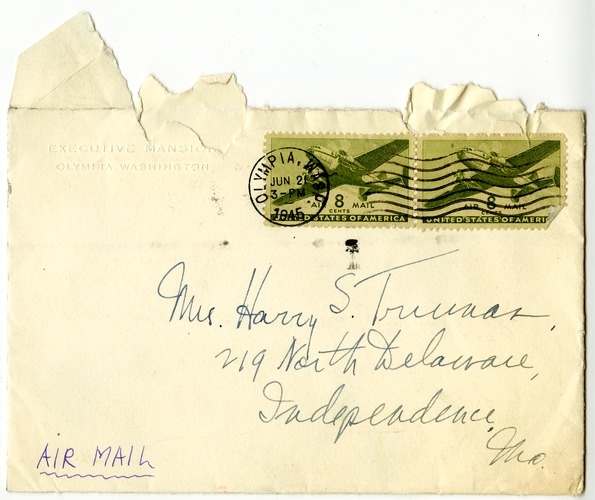 EXECUTIVE MANSION
OLYMPIA, WASHINGTON
OLYMPIA, WASH.
JUN 2
3-PM
1945
AIR 8 MAIL
CENTS
UNITED STATES OF AMERICA
AIR 8 MAIL
UNITED STATES OF AMERI
Mrs. Harry S. Truman,
219 North Delaware,
Independence,
Mo.
AIR MAIL